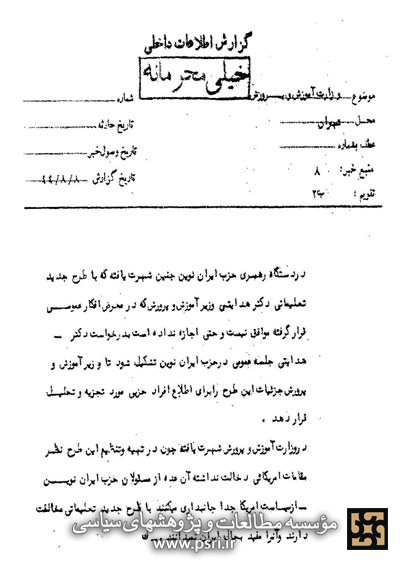 گزارش اطلاعات داخلی
خیلی محرمانه
موضوع وزارت آموزش و پرورش شماره
محل تهران تاریخ حادثه
عطف بشماره تاریخ وصول خبر
منبع خبر: ۸ تاریخ گزارش ۴۴/۸/۸
تقویم : ب۲
در دستگاه رهبری حزب ایران نوین چنین شهرت یافته که با طرح جدید
تعلیماتی دکتر هدایتی وزیر آموزش و پرورش که در معرض افکار عمومی
قرار گرفته موافق نیست و حتی اجازه نداده است بدرخواست دکتر
هدایتی جلسه عمومی در حزب ایران نوین تشکیل شود تا وزیر آموزش و
پرورش جزئیات این طرح را برای اطلاع افراد حزبی مورد تجزیه و تحلیل
قرار دهد .
در وزارت آموزش و پرورش شهرت یافته چون در تهیه و تنظیم این طرح نظر
مقامات امریکائی دخالت نداشته آن عده از مسئولان حزب ایران نوین
که از سیاست امریکا جدا جانبداری میکنند با طرح جدید تعلیماتی مخالفت
دارند و آنرا مفید بحال ایران نمیدانند
مؤسسه مطالعات و پژوهشهای سیاسی
www.psri.ir